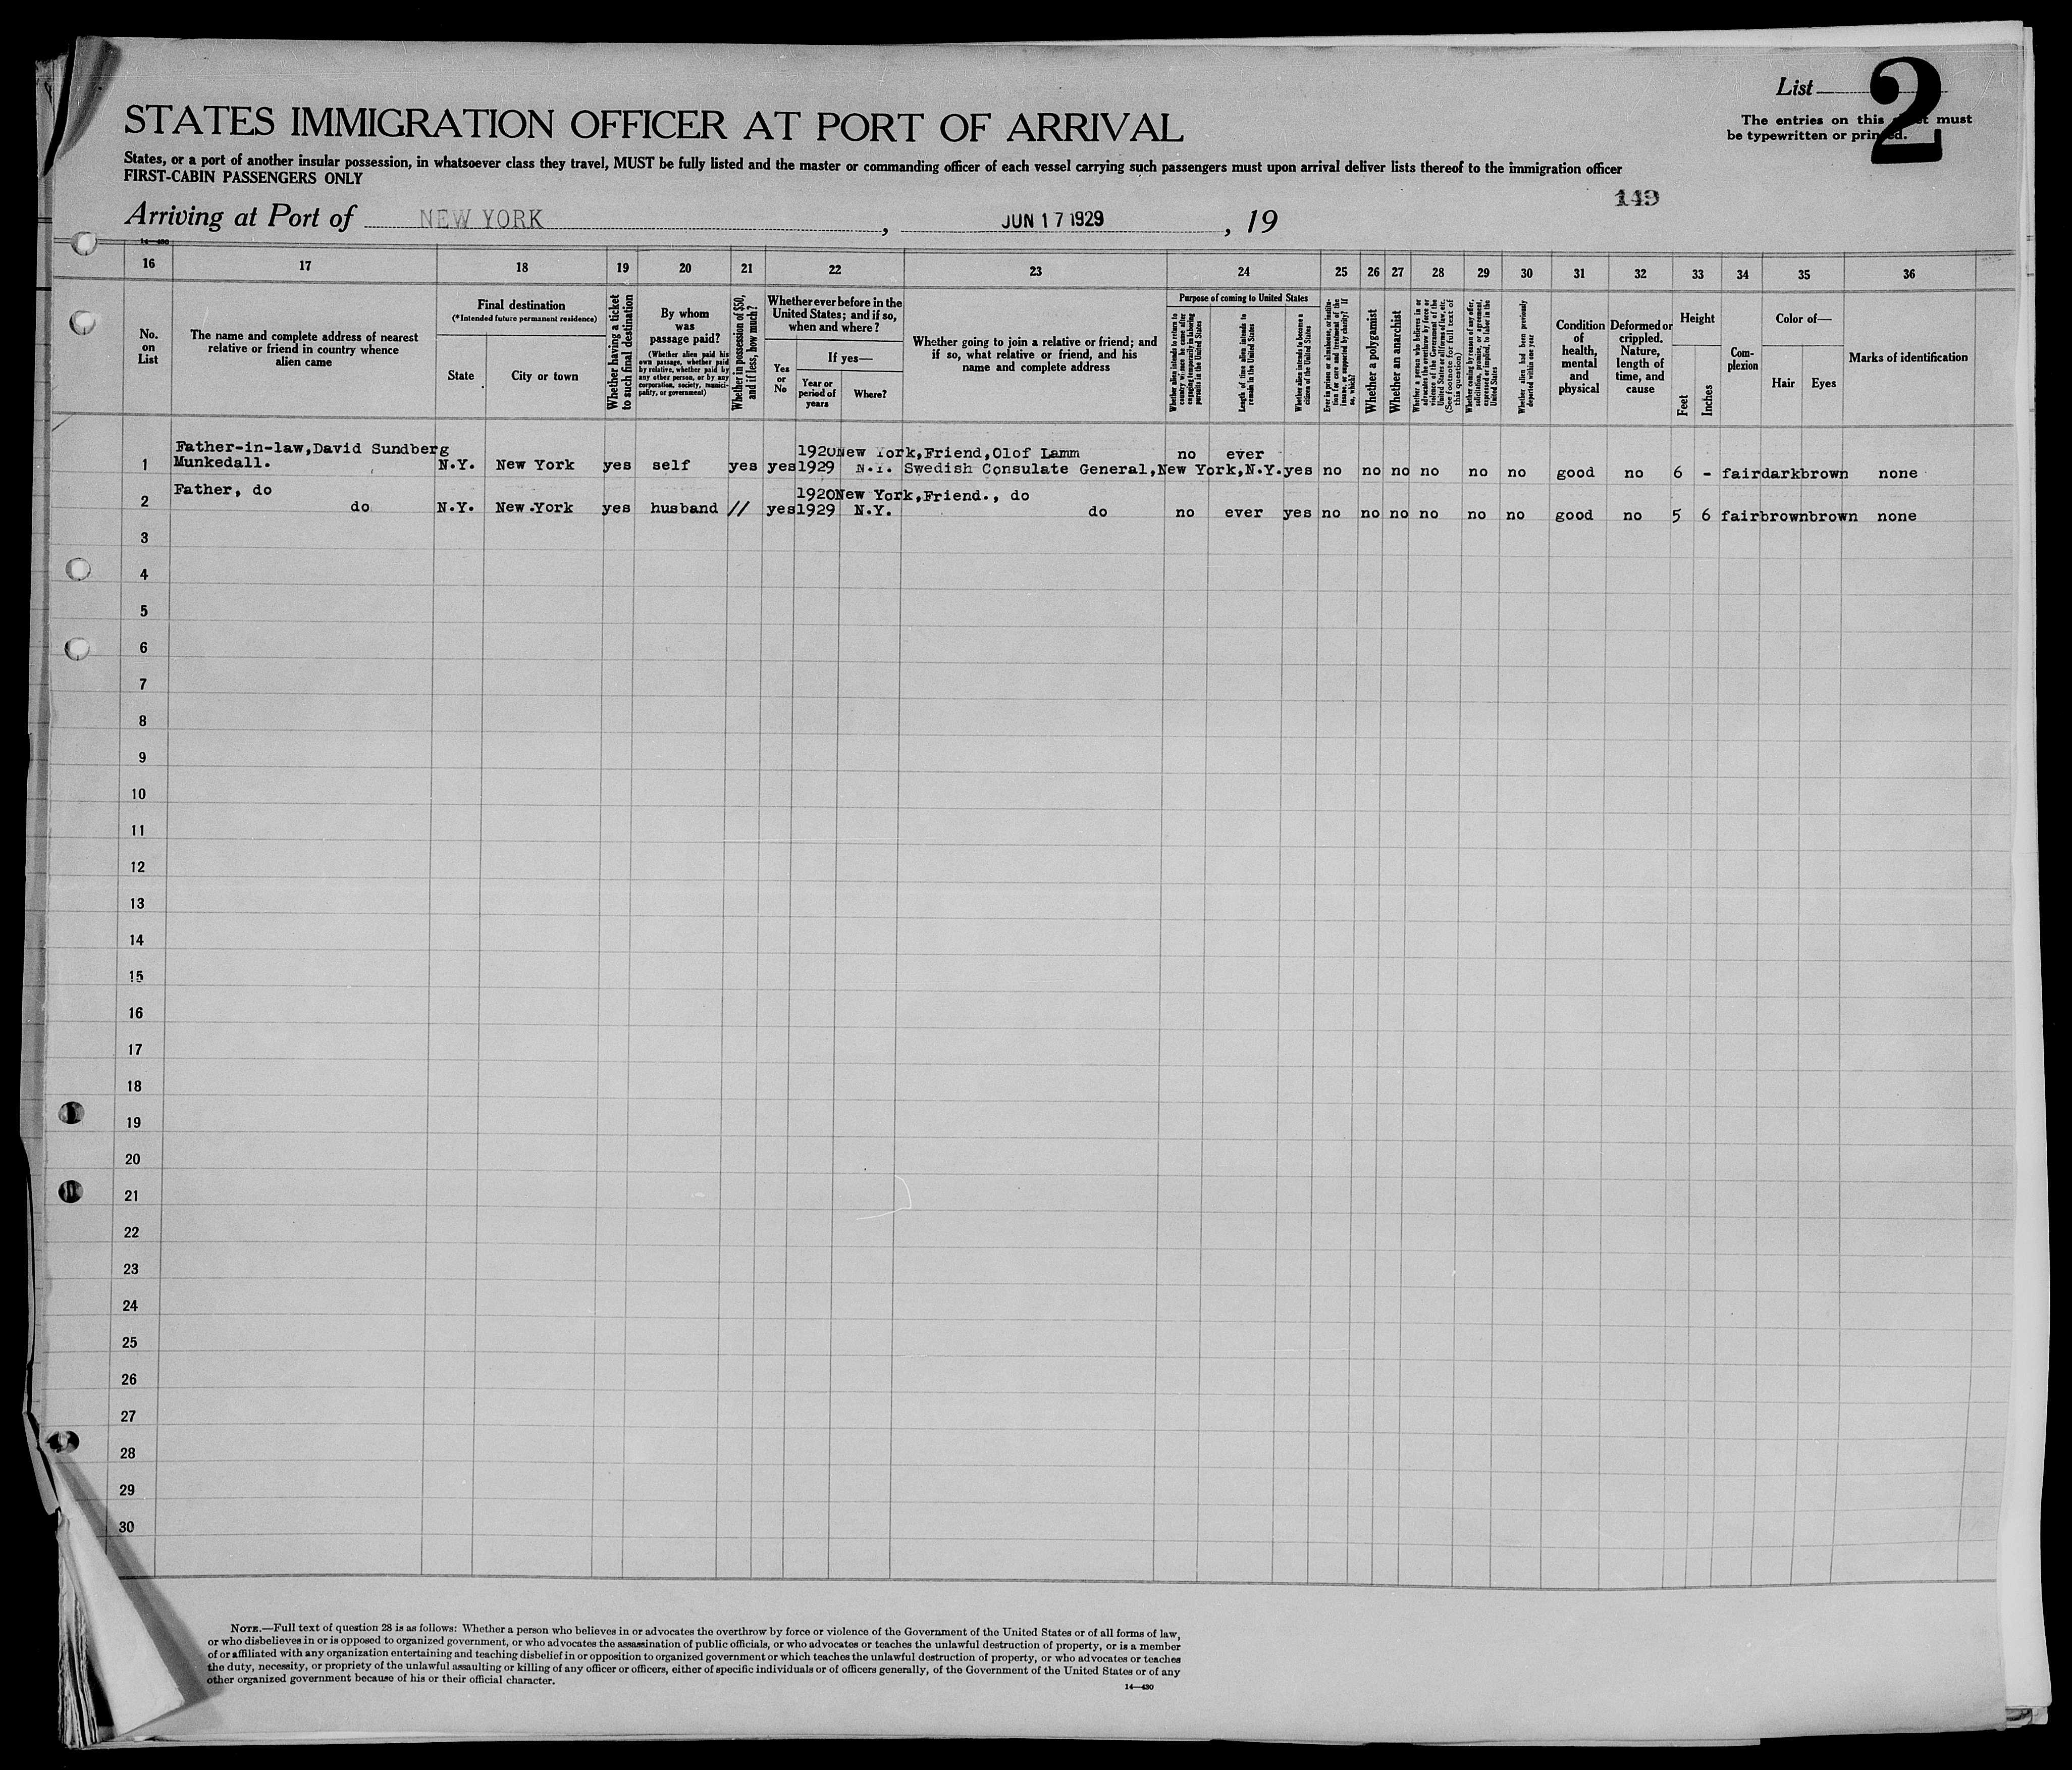 List
2
The entries on this must
be typewritten or printed.
STATES IMMIGRATION OFFICER AT PORT OF ARRIVAL
States, or a port of another insular possession, in whatsoever class they travel, MUST be fully listed and the master or commanding officer of each vessel carrying such passengers must upon arrival deliver lists thereof to the immigration officer
FIRST-CABIN PASSENGERS ONLY
149
Arriving at Port of NEW YORK, JUN 17 1929, 19
14—430
16 17 18 19 20 21 22 23 24 25 26 27 28 29 30 31 32 33 34 35 36
No. on List
The name and complete address of nearest relative or friend in country whence alien came
Final destination
(*Intended future permanent residence)
State
City or town
Whether having a ticket to such final destination
By whom was passage paid?
(Whether alien paid his own passage, whether paid by relative, whether paid by any other person, or by any corporation, society, municipality, or government)
Whether in possession of $50, and if less, how much?
Whether ever before in the United States; and if so, when and where?
Yes or No
If yes—
Year or period of years
Where?
Whether going to join a relative or friend; and if so, what relative or friend, and his name and complete address
Purpose of coming to United States
Whether alien intends to return to country whence he came after engaging temporarily in laboring pursuits in the United States
Length of time alien intends to remain in the United States
Whether alien intends to become a citizen of the United States
Ever in prison or almshouse, or institution for care and treatment of the insane, or supported by charity? If so, which?
Whether a polygamist
Whether an anarchist
Whether a person who believes in or advocates the overthrow by force or violence of the Government of the United States or all forms of law, etc. (See footnote for full text of this question)
Whether coming by reason of any offer, solicitation, promise, or agreement, expressed or implied, to labor in the United States
Whether alien had been previously deported within one year
Condition of health, mental and physical
Deformed or crippled. Nature, length of time, and cause
Height
Feet
Inches
Complexion
Color of—
Hair
Eyes
Marks of identification
Father-in-law,David Sundberg 1920 New York,Friend,Olof Lamm no ever
1 Munkedall. N.Y. New York yes self yes yes 1929 N.Y. Swedish Consulate General,New York,N.Y. yes no no no no no no good no 6 - fair dark brown none
Father, do 1920 New York,Friend., do
2 do N.Y. New York yes husband // yes 1929 N.Y. do no ever yes no no no no no no good no 5 6 fair brown brown none
3
4
5
6
7
8
9
10
11
12
13
14
15
16
17
18
19
20
21
22
23
24
25
26
27
28
29
30
NOTE.—Full text of question 28 is as follows: Whether a person who believes in or advocates the overthrow by force or violence of the Government of the United States or of all forms of law,
or who disbelieves in or is opposed to organized government, or who advocates the assassination of public officials, or who advocates or teaches the unlawful destruction of property, or is a member
of or affiliated with any organization entertaining and teaching disbelief in or opposition to organized government or which teaches the unlawful destruction of property, or who advocates or teaches
the duty, necessity, or propriety of the unlawful assaulting or killing of any officer or officers, either of specific individuals or of officers generally, of the Government of the United States or of any
other organized government because of his or their official character.
14—430